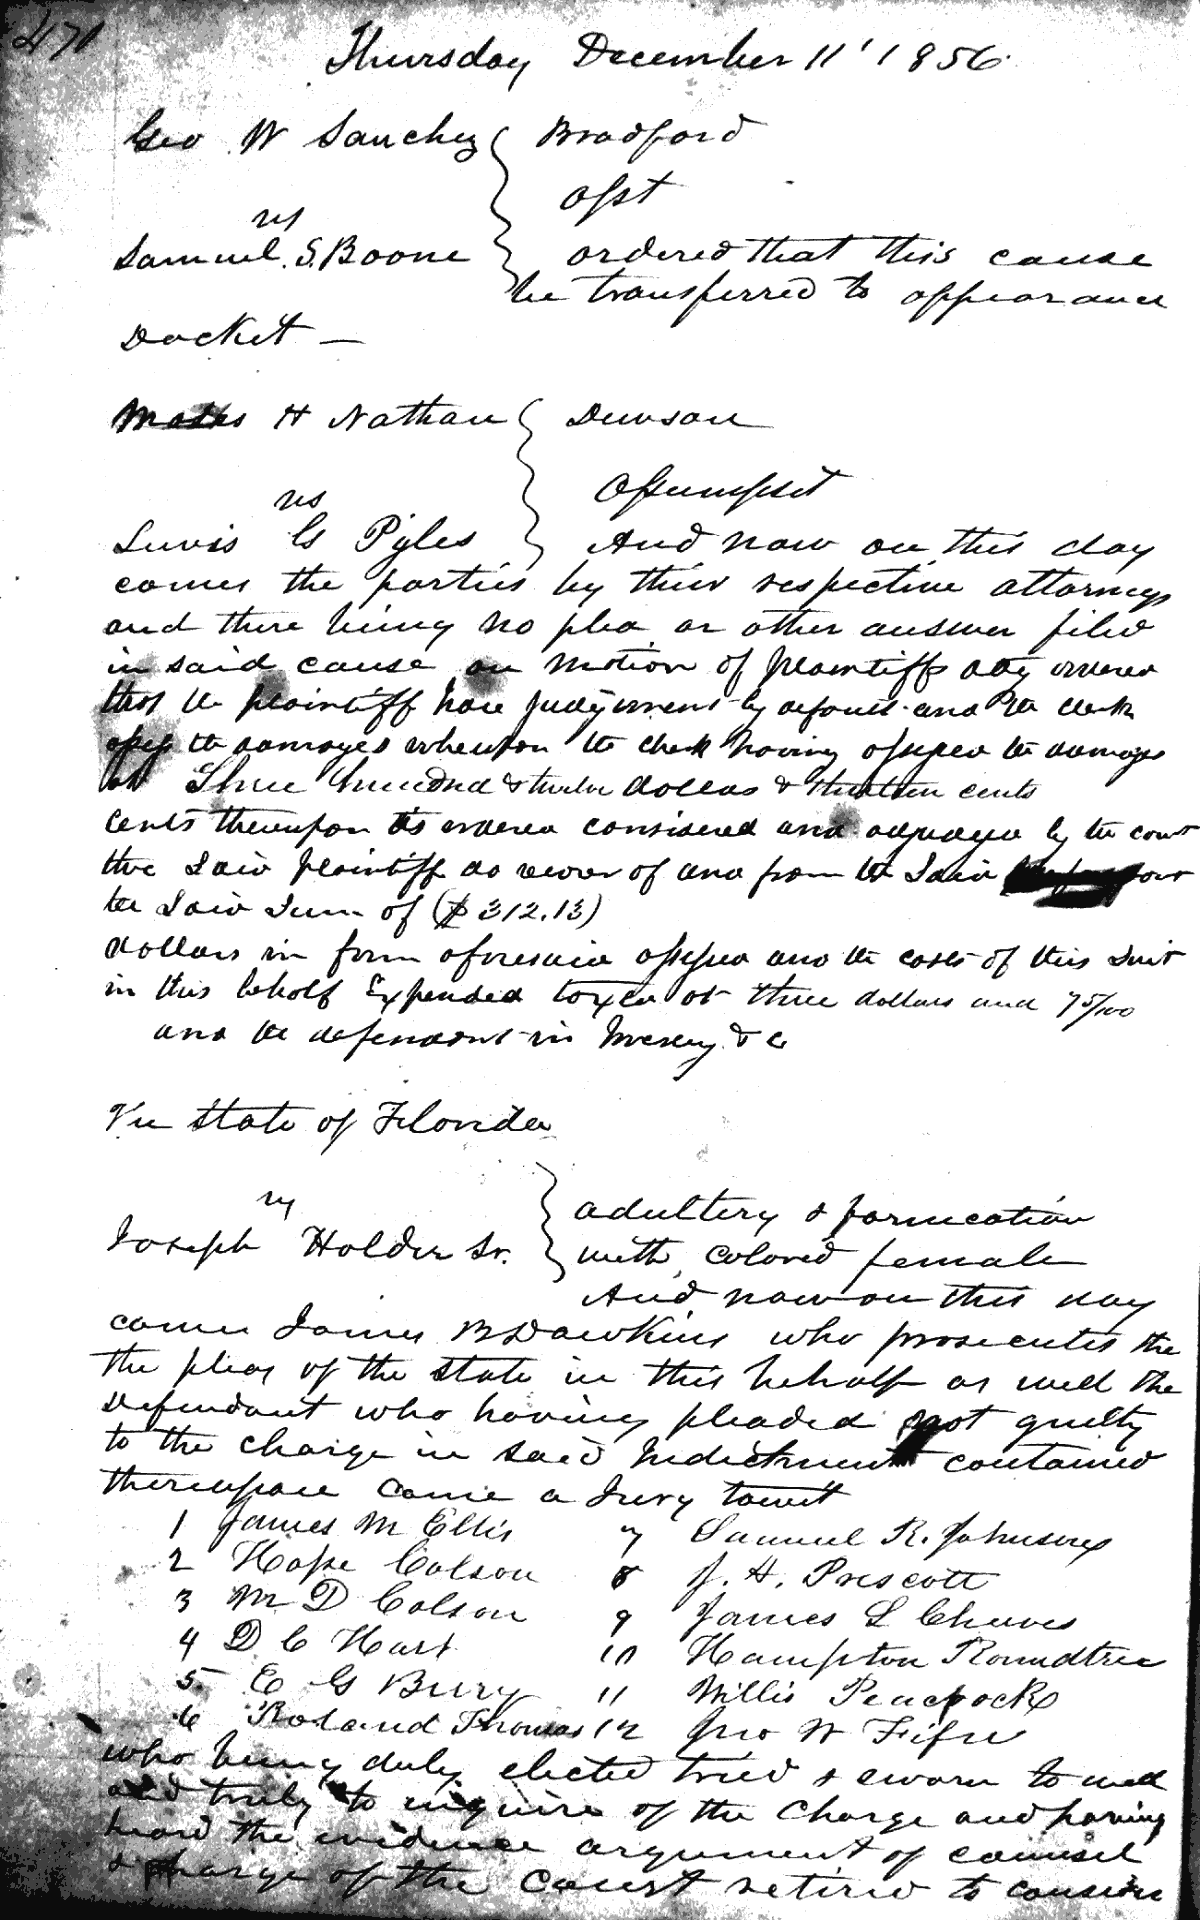 471
Thursday December 11' 1856.
Geo W Sanchez Bradford
asst
vs
Samuel S. Boone ordered that this cause
be transferred to appearance
Docket —
Moses H Nathan Dawson
assumpsit
vs
Lewis G Pyles And now on this day
comes the parties by their respective attorneys
and there being no plea or other answer filed
in said cause on motion of plaintiffs atty ordered
that the plaintiff have judgment by default and the clerk
assess the damages whereupon the clerk having assessed the damages
at Three hundred & twelve dollars & thirteen cents
cents thereupon its ordered considered and adjudged by the court
the said plaintiff do recover of and from the said
the said sum of ($312.13)
dollars in form aforesaid assessed and the costs of this suit
in this behalf Expended taxed at three dollars and 75/100
and the defendant in mercy & c
The State of Florida
vs adultery & fornication
Joseph Holder Sr. with colored female
And now on this day
comes James B Dawkins who prosecutes the
the pleas of the State in this behalf as well the
Defendant who having pleaded not guilty
to the charge in said Indictment contained
thereupon came a Jury towit
1 James M Ellis 7 Samuel R. Johnson
2 Hope Colson 8 J. H. Prescott
3 M D Colson 9 James L Cheeves
4 D C Hart 10 Hampton Roundtree
5 E G Bury 11 Willis Peacock
6 Roland Thomas 12 Jno W Fifre
who being duly elected tried & sworn to well
and truly to enquire of the charge and having
heard the evidence argument of counsel
& charge of the court retired to consider